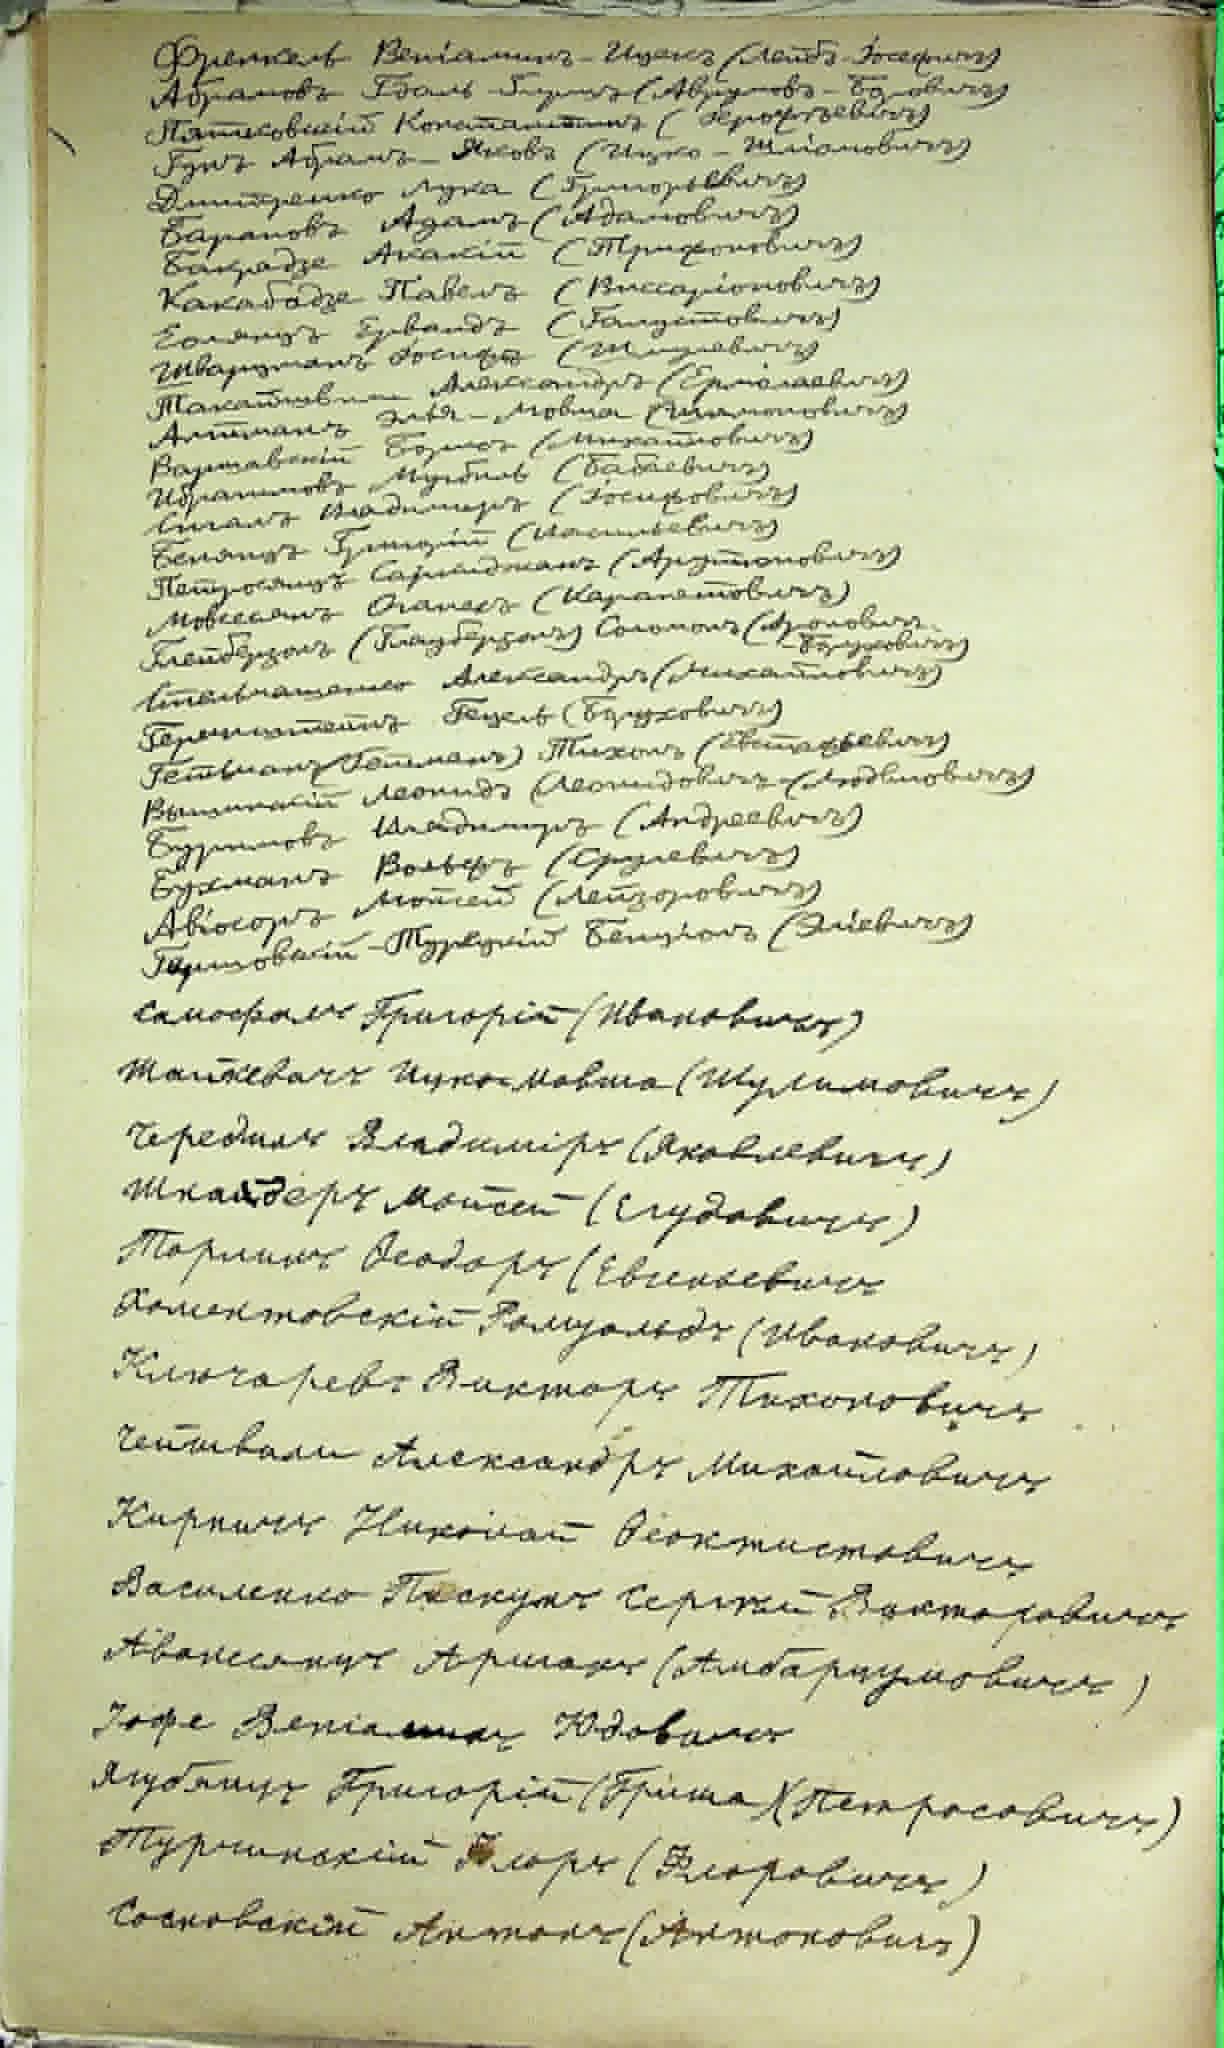 Френкель Веніаминъ-Ицекъ (Лейбъ-Іосефичъ)
Абрамовъ Гдаль-Гиршъ (Аврумовъ-Боровичъ)
Пятковскій Константинъ (Герофѣевичъ)
Гунъ Абрамъ-Яковъ (Ицко-Шліомовичъ)
Дмитренко Лука (Григорьевичъ)
Барановъ Адамъ (Адамовичъ)
Бакрадзе Акакій (Трифоновичъ)
Какабадзе Павелъ (Виссаріоновичъ)
Ервандъ (Галустовичъ)
Шварцманъ Іосифъ (Шмулевичъ)
Такайшвили Александръ (Ермолаевичъ)
Альтманъ Элья-Мовша
Варшавскій Борисъ (Михайловичъ)
Ибрагимовъ (Бабаевичъ)
Сигалъ Владимиръ (Іосифовичъ)
Бенянцъ Григорій (Васильевичъ)
Петросянцъ (Арутюновичъ)
Мовсесянъ Оганесъ (Карапетовичъ)
Глейберзонъ (Глауберзонъ) Соломонъ (Ароновичъ-
Боруховичъ)
Стельмашенко Александръ (Михайловичъ)
Геренштейнъ Гецель (Боруховичъ)
Гетьманъ (Гетманъ) Тихонъ (Евстафьевичъ)
Вышинскій Леонидъ (Леонидовичъ-(Людвиговичъ)
Буримовъ Владимиръ (Андреевичъ)
Бухманъ Вольфъ (Срулевичъ)
Авіосоръ Мойсей (Лейзоровичъ)
Гершовскій-Турецкій Бенціонъ (Эліевичъ)
Самофалъ Григорій (Ивановичъ)
Шайкевичъ Ицко-Мовша (Шулимовичъ)
Чередникъ Владиміръ (Яковлевичъ)
Шнайдеръ Мойсей (Егудовичъ)
Торлинъ Ѳеодоръ (Евгеньевичъ
Хоментовскій Ромуальдъ (Ивановичъ)
Ключаревъ Викторъ Тихоновичъ
Чейшвили Александръ Михайловичъ
Кирпичъ Николай Ѳеоктистовичъ
Василенко Пискунъ Сергѣй Викторовичъ
Аванесянцъ Аршакъ (Амбарцумовичъ)
Іофе Веніаминъ Юдовичъ
Ягубянцъ Григорій (Гриша) (Петросовичъ)
Турчинскій Флоръ (Флоровичъ)
Сосновскій Антонъ (Антоновичъ)